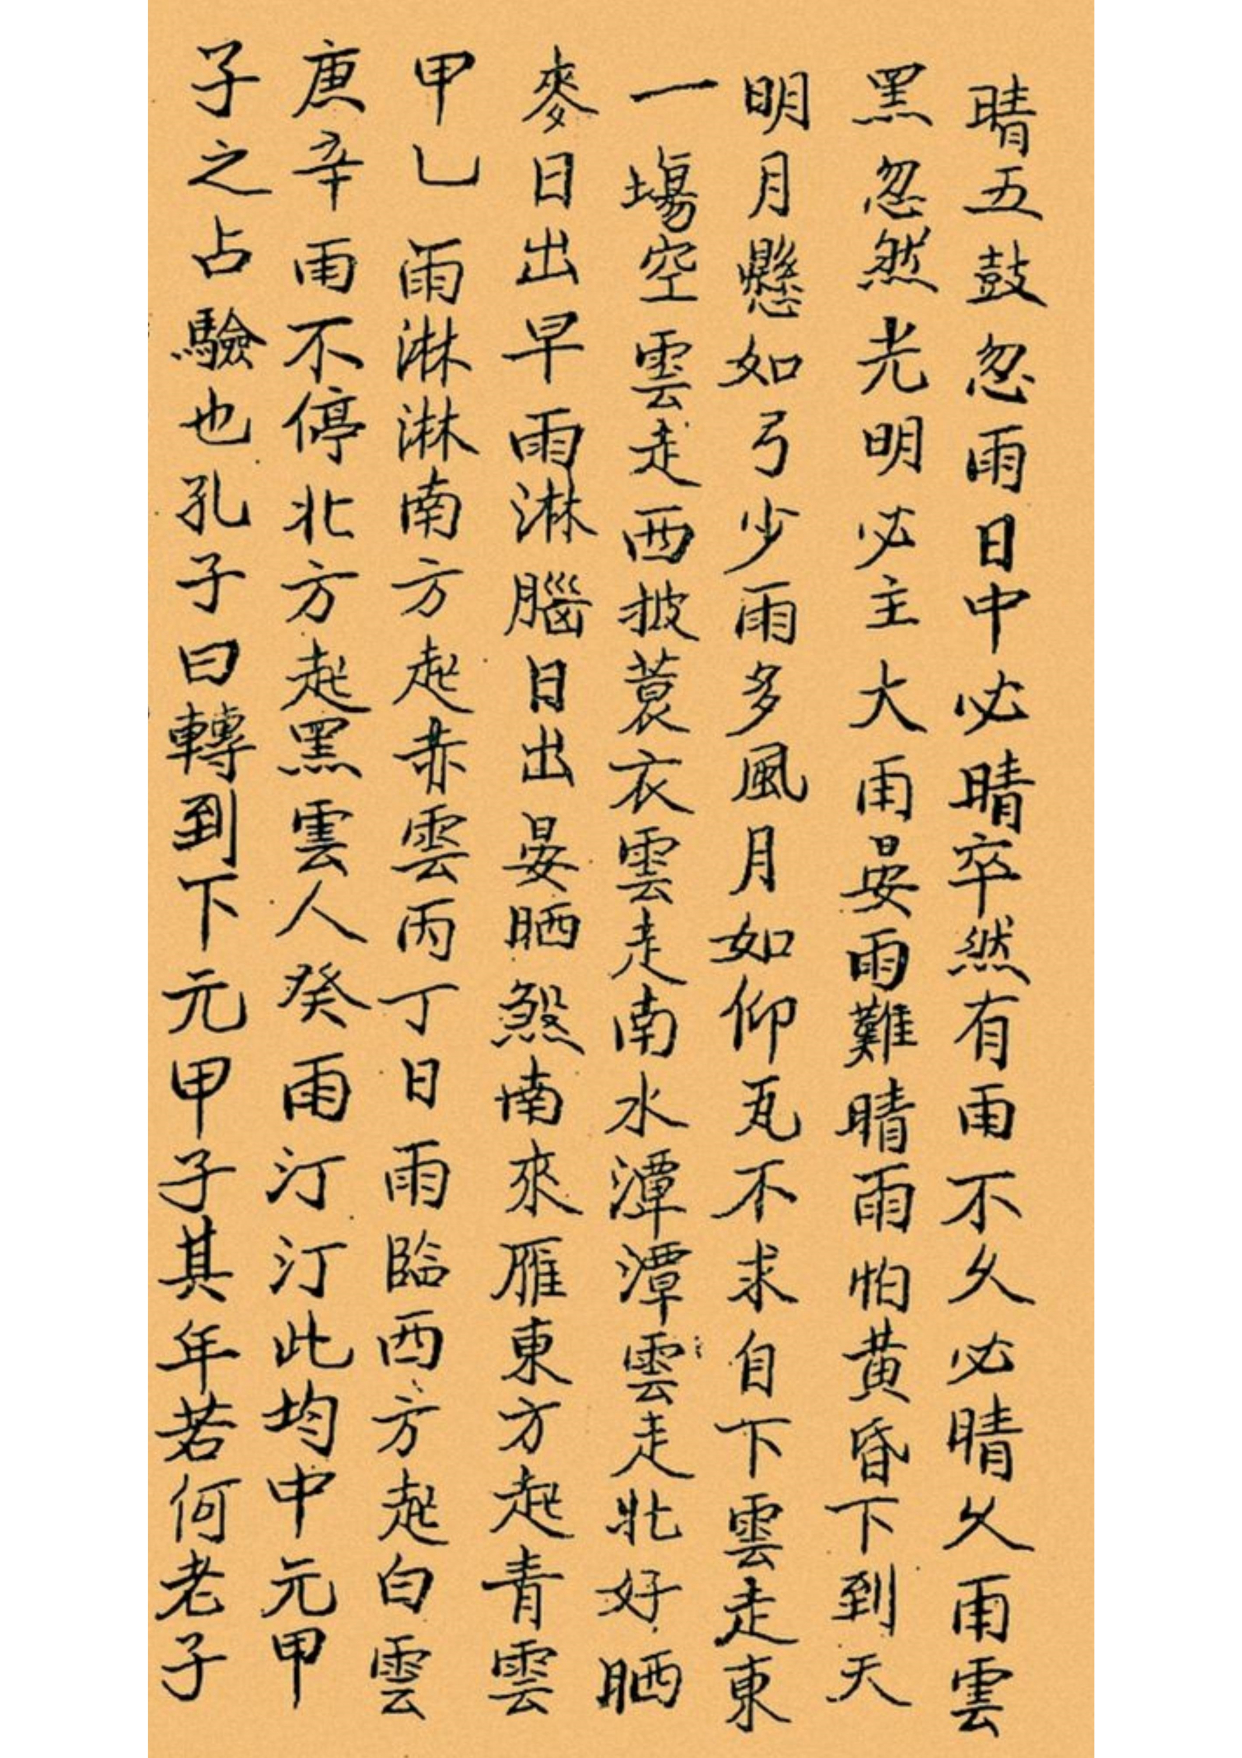 晴五鼓忽雨日中必晴卒然有雨不久必晴久雨雲
黑忽然光明必主大雨晏雨難晴雨怕黃昏下到天
明月懸如弓少雨多風月如仰瓦不求自下雲走東
一場空雲走西披蓑衣雲走南水潭潭雲走北好晒
麥日出早雨淋腦日出晏晒煞南來雁東方起青雲
甲乙雨淋淋南方起赤雲丙丁日雨臨西方起白雲
庚辛雨不停北方起黑雲人癸雨汀汀此均中元甲
子之占驗也孔子曰轉到下元甲子其年若何老子